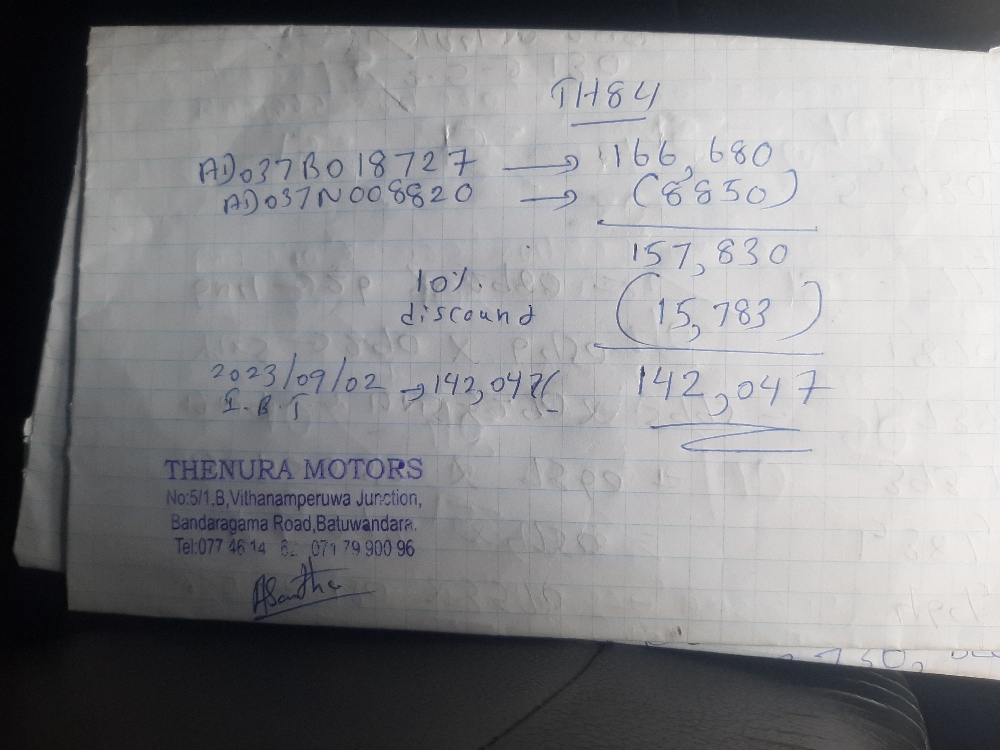 TH84
AD037B018727 → 166,680
AD037N008820 → (8850)
157,830
10%
discound (15,783)
2023/09/02 → 142,047/= 142,047
I.B.T
THENURA MOTORS
No:5/1,B,Vithanamperuwa Junction,
Bandaragama Road,Batuwandara.
Tel:077 46 14 071 79 900 96
ASantha